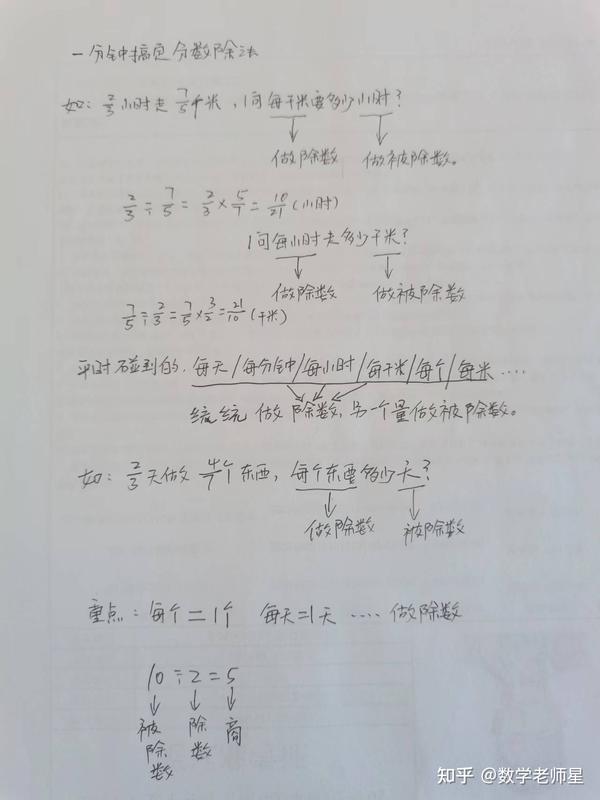 一分钟搞定分数除法
如：2/3小时走7/5千米，问每千米要多少小时？
做除数 做被除数。
2/3÷7/5=2/3×5/7=10/21(小时)
问每小时走多少千米？
做除数 做被除数
7/5÷2/3=7/5×3/2=21/10(千米)
平时碰到的，每天/每分钟/每小时/每千米/每个/每米....
统统做除数，另一个量做被除数。
如：2/3天做4/7个东西，每个东西要多少天？
做除数 被除数
重点：每个=1个 每天=1天 .... 做除数
10÷2=5
被除数 除数 商
知乎 @数学老师星